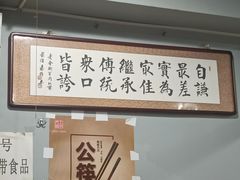 自謙
最差
實佳
家為
繼承
傳統
眾口
皆誇
公筷
号
带食品